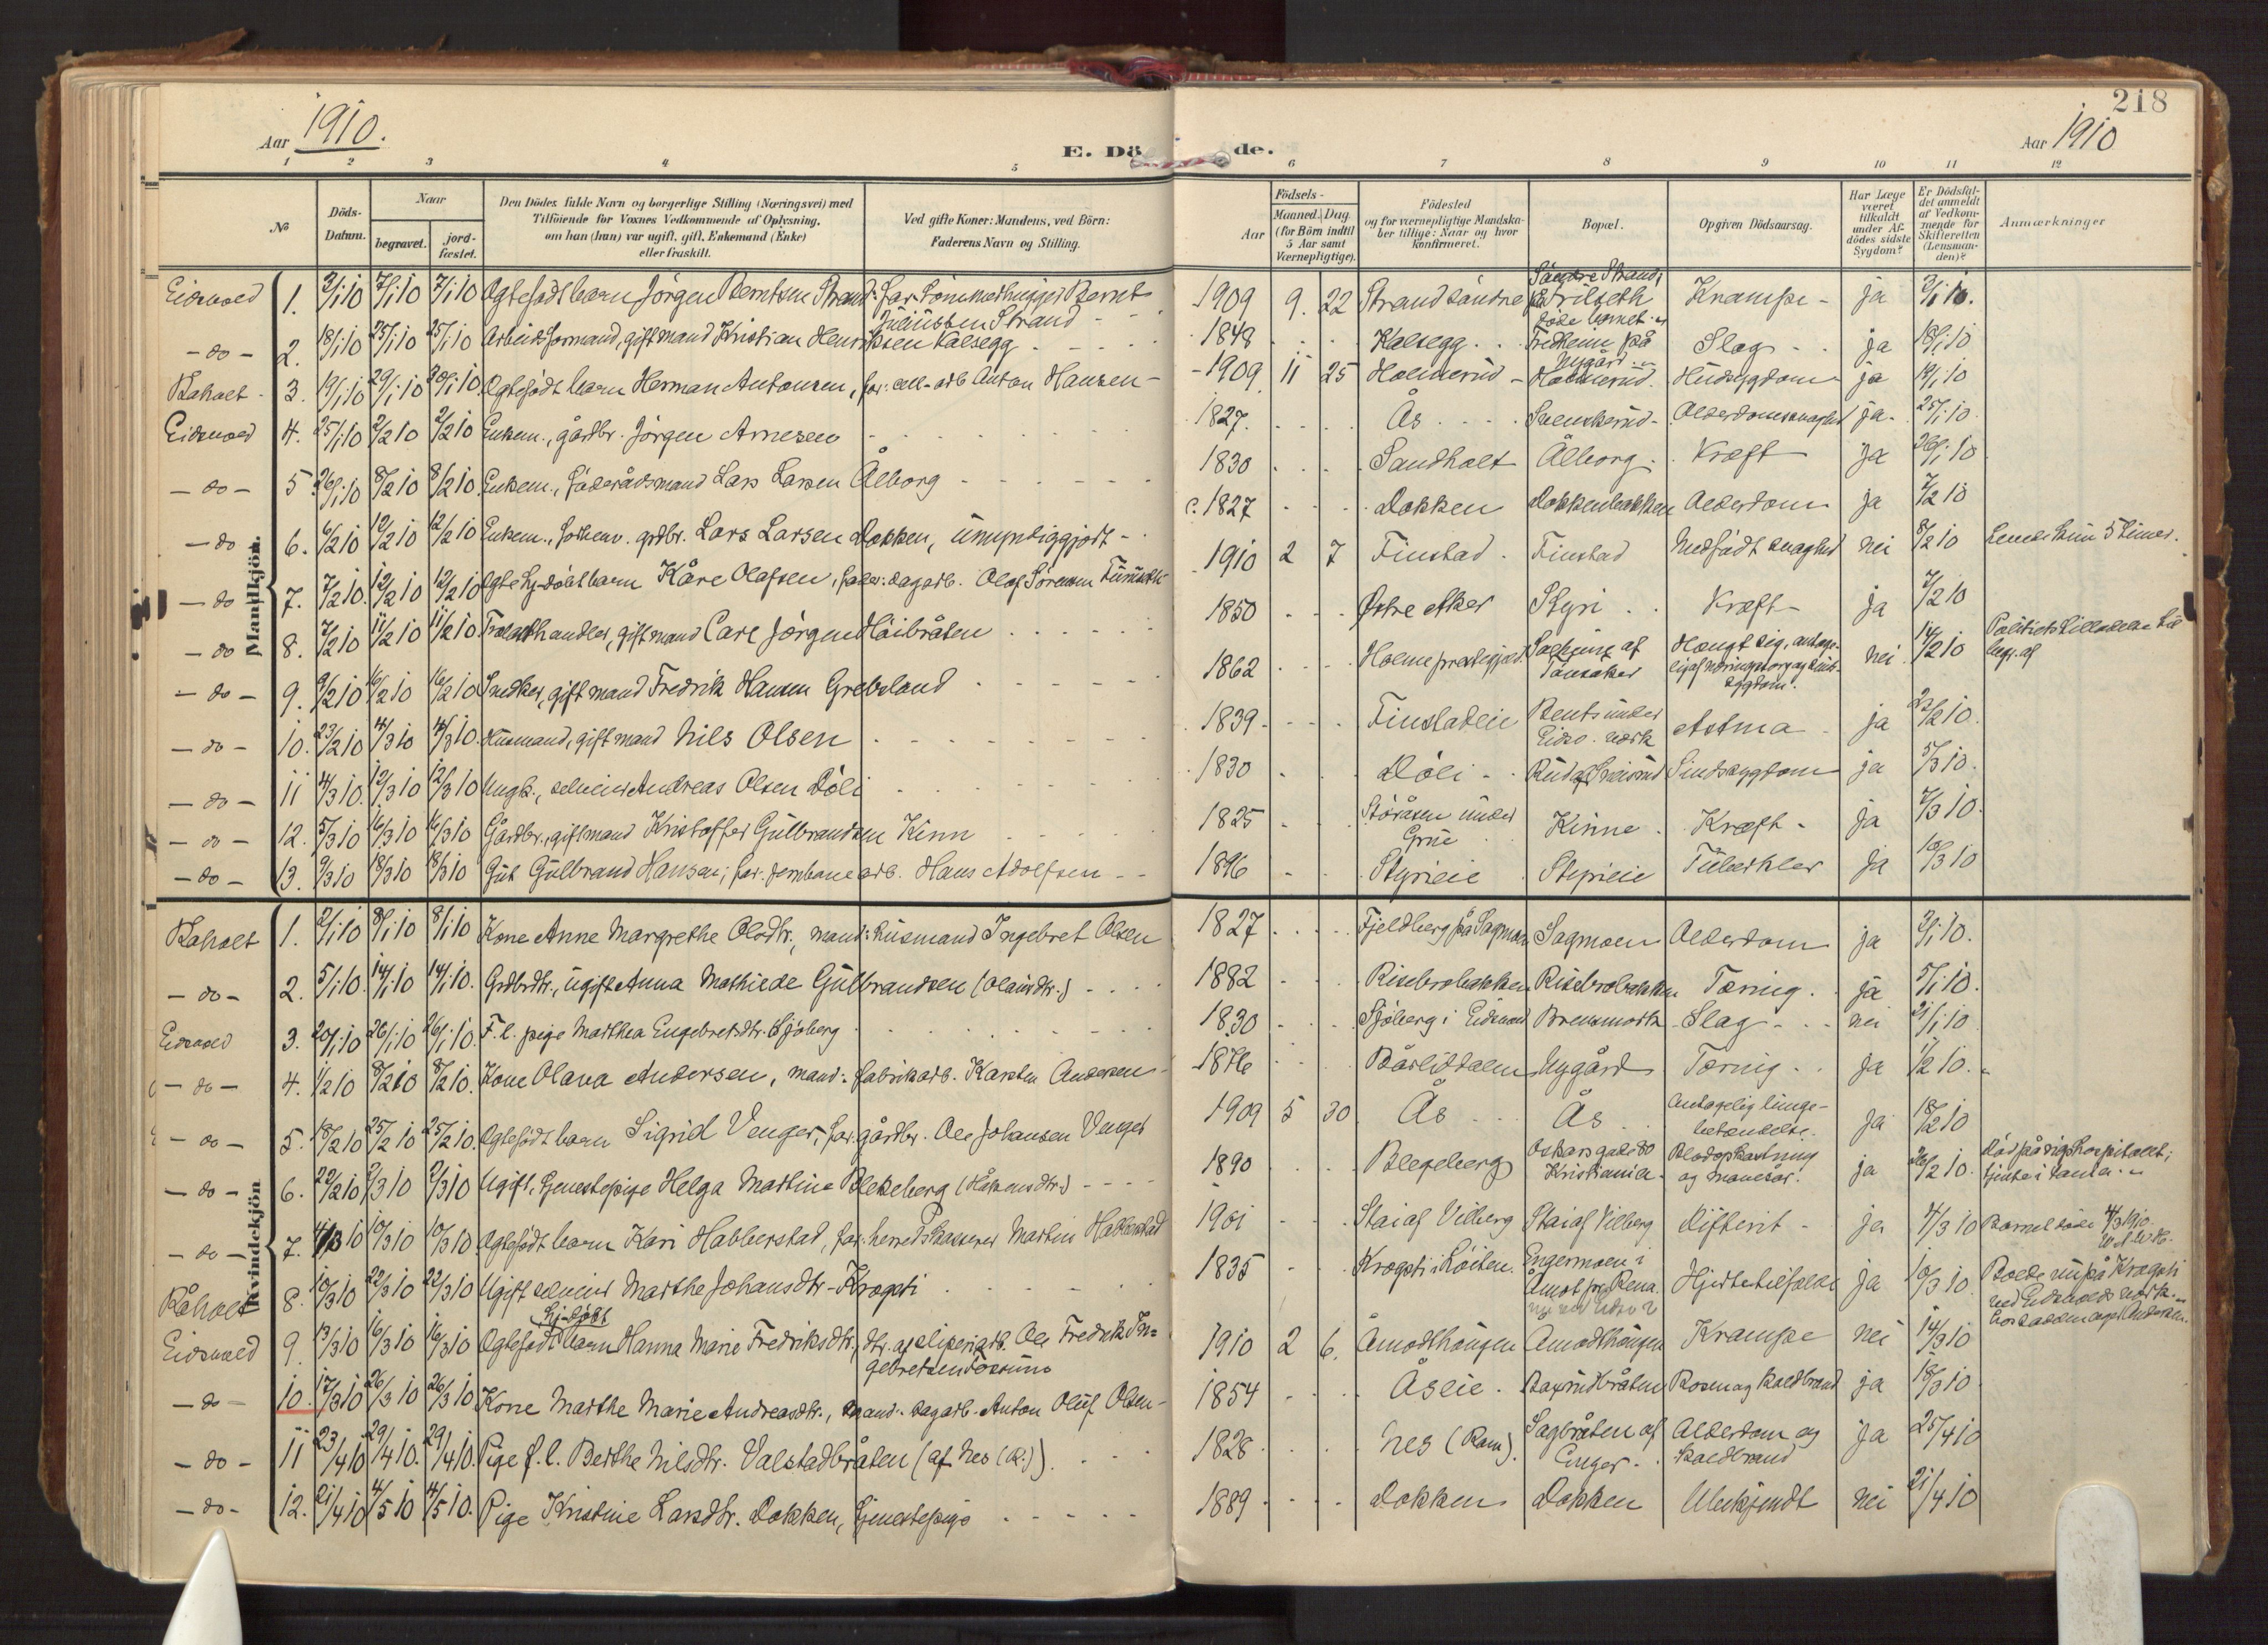 218
Aar 1910.
E. Dö
de.
Aar 1910
1 2 3 4 5 6 7 8 9 10 11 12
No
Döds-Datum.
Naar
begravet.
jord-fæstet.
Den Dödes fulde Navn og borgerlige Stilling (Næringsvei) med
Tilföiende for Voxnes Vedkommende af Oplysning,
om han (hun) var ugift, gift, Enkemand (Enke)
eller fraskilt.
Ved gifte Koner: Mandens, ved Börn:
Faderens Navn og Stilling.
Födsels-
Aar
Maaned. Dag
(for Börn indtil
5 Aar samt
Værnepligtige).
Födested
og for værnepligtige Mandska-
ber tillige: Naar og hvor
konfirmeret.
Bopæl.
Opgiven Dödsaarsag.
Har Læge
været
tilkaldt
under Af-
dödes sidste
Sygdom?
Er Dödsfal-
det anmeldt
af Vedkom-
mende for
Skifteretten
(Lensman-
den)?
Anmærkninger
Mandkjön.
Eidsvold 1. 2/1 10 7/1 10 7/1 10 Ægtefödt barn Jörgen Berntsen Strand: Far: Tömmerhugger Bernt
Juliussen Strand - 1909 9. 22 Strand söndre Söndre Strand; Krampe - ja 3/1 10.
- do - 2. 18/1 10 25/1 10 25/1 10 Arbeidsformand, gift mand Kristian Henriksen Kalsegg 1848 Kalsegg Fredheim på Nygård Slag ja 18/1 10
Råholt 3. 19/1 10 29/1 10 29/1 10 Ægtefödt barn Herman Antonsen, far: cell-arb Anton Hansen - 1909 11 25 Holmerud - Holmerud. Hudsygdom ja 19/1 10
Eidsvold 4. 25/1 10 2/2 10 2/2 10 Enkem., gårdbr. Jörgen Arnesen 1827. Ås Svenskerud - Alderdomssvaghed ja 25/1 10
- do - 5. 26/1 10 8/2 10 8/2 10 Enkem., föderådsmand Lars Larsen Ålborg 1830 Sandholt Ålborg Kræft ja 26/1 10
- do 6. 6/2 10 12/2 10 12/2 10 Enkem., forhenv. grdbr. Lars Larsen Dokken, umyndiggjort - c. 1827 Dokken Dokkenbakken Alderdom ja 7/2 10
- do 7. 7/2 10 12/2 10 12/2 10 Ægte hj-döbt barn Kåre Olafsen, fader: dagarb. Olaf Sörensen 1910 2 7 Finstad - Finstad Medfödt svaghed nei 8/2 10 Levede kun 5 timer.
- do 8. 7/2 10 11/2 10 11/2 10 Trælasthandler, gift mand Carl Jörgen Höibråten 1850 Östre Aker Styri Kræft - ja 7/2 10
- do - 9. 9/2 10 16/2 10 16/2 10 Snedker, gift mand Fredrik Hansen Grebsland 1862 Holme prestegjeld af Tönsaker Hængt sig, antage-
lig af næringssorg og sinds-
sygdom. nei 14/2 10 Politiets tilladelse til
begr. af
- do - 10. 23/2 10 4/3 10 4/3 10 Husmand, gift mand Nils Olsen 1839 - Finstadeie Bents under
Eidsv. værk Astma ja 23/2 10.
- do - 11 4/3 10. 12/3 10 12/3 10 Ungk., selveier Andreas Olsen Döli 1830 Döli Sindssygdom ja 5/3 10.
- do - 12. 5/3 10 16/3 10 16/3 10 Gårdbr., gift mand Kristoffer Gulbrandsen Kinn 1825 Störåsen under
Grue Kinne Kræft - ja 7/3 10.
- do - 13. 9/3 10 18/3 10 18/3 10 Gut Gulbrand Hansen; far: jernbanearb. Hans Adolfsen - - 1896 Styrieie Styrieie Tuberkler ja 10/3 10
Kvindekjön
Råholt 1. 2/1 10 8/1 10 8/1 10 Kone Anne Margrethe Olsdtr., mand: husmand Ingebret Olsen 1827 Fjeldberg på Sagmoen Sagmoen Alderdom ja 3/1 10.
- do - 2. 5/1 10. 14/1 10 14/1 10. Grdbrdtr., ugift Anna Mathilde Gulbrandsen (Olausdtr.) 1882 Risebrobakken Risebrobakken Tæring. ja 5/1 10.
Eidsvold 3. 20/1 10 26/1 10 26/1 10. F. l. pige Marthea Engebretsdtr. Sjöberg 1830 Sjöberg i Eidsvold Brensmork Slag nei 21/1 10
- do - 4. 1/2 10 8/2 10 8/2 10. Kone Olava Andersen, mand: fabrikarb. Karsten Andersen 1876 Bårlidalen Nygård Tæring - ja 1/2 10.
- do - 5. 18/2 10 25/2 10 25/2 10. Ægtefödt barn Sigrid Venger, far: gårdbr. Ole Johansen Venger 1909 5 30 Ås Ås Antagelig lunge-
betændelse. ja 18/2 10
- do - 6. 22/2 10 2/3 10 2/3 10 Ugift, tjenestepige Helga Martine Blekeberg (Håkensdtr.) 1890 Blegeberg Oskarsgate 80
Kristiania Blodopkastning
og mavesår. ja 26/2 10. Död på rigshospitalet;
tjente i
- do - 7. 4/3 10 10/3 10 10/3 10 Ægtefödt barn Kari Habberstad, far: herredskasserer Martin Habberstad 1901 Stai af Vilberg Stai af Vilberg Difterit - ja 4/3 10 Barnet döde 4/3 1910.
Råholt 8. 10/3 10 22/3 10 22/3 10 Ugift selveier Marthe Johansdtr - Krogsti 1835 Krogsti i Löiten. Engermoen i
Åmot pr. Rena. Hjertetilfælde ja 10/3 10 Boede nu på Krogsti
ved Eidsvolds værk.
Eidsvold 9. 13/3 10 16/3 10 16/3 10 Ægtefödt hj-döbt barn Hanna Marie Fredriksdtr., dtr. af sliperiarb. Ole Fredrik In-
gebretsen 1910 2 6. Åmodthaugen Åmodthaugen Krampe nei 14/3 10
- do - 10. 17/3 10 26/3 10 26/3 10 Kone Marthe Marie Andreasdtr., mand: dagarb. Anton Oluf Olsen - 1854 Åseie Baxrudbråten Rosen og koldbrand ja 18/3 10.
- do - 11 23/4 10 29/4 10. 29/4 10. Pige f. l. Berthe Nilsdtr. Valstadbråten (af Nes (R.)) 1828 Nes (Rom). Sagbråten af
Enger Alderdom og
koldbrand ja 25/4 10
- do - 12. 21/4 10 4/5 10 4/5 10. Pige Kristine Larsdtr. Dokken, tjenestepige 1889 Dokken Dokken Ubekjendt nei 21/4 10